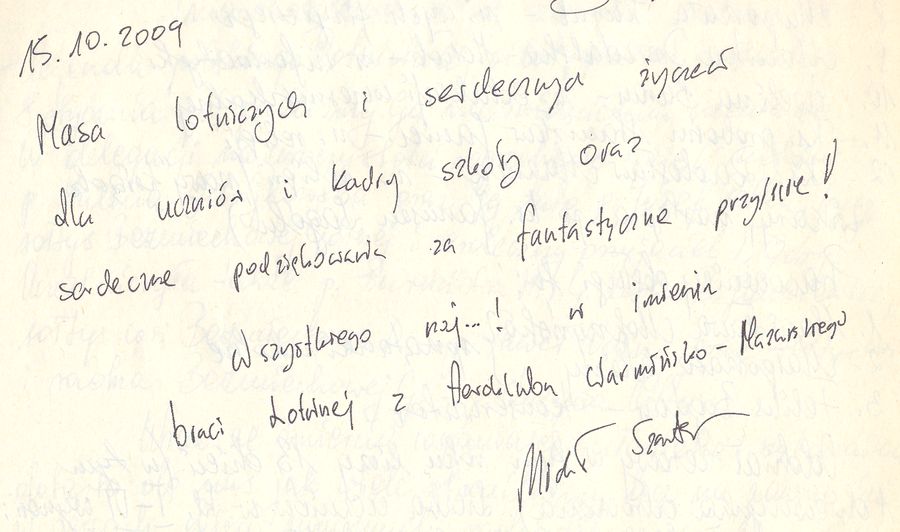 15.10.2009
Masa lotniczych i serdecznych życzeń
dla uczniów i kadry szkoły oraz
serdeczne podziękowania za fantastyczne przyjęcie!
Wszystkiego naj...! w imieniu
braci Lotniczej z Aeroklubu Warmińsko-Mazurskiego
Michał